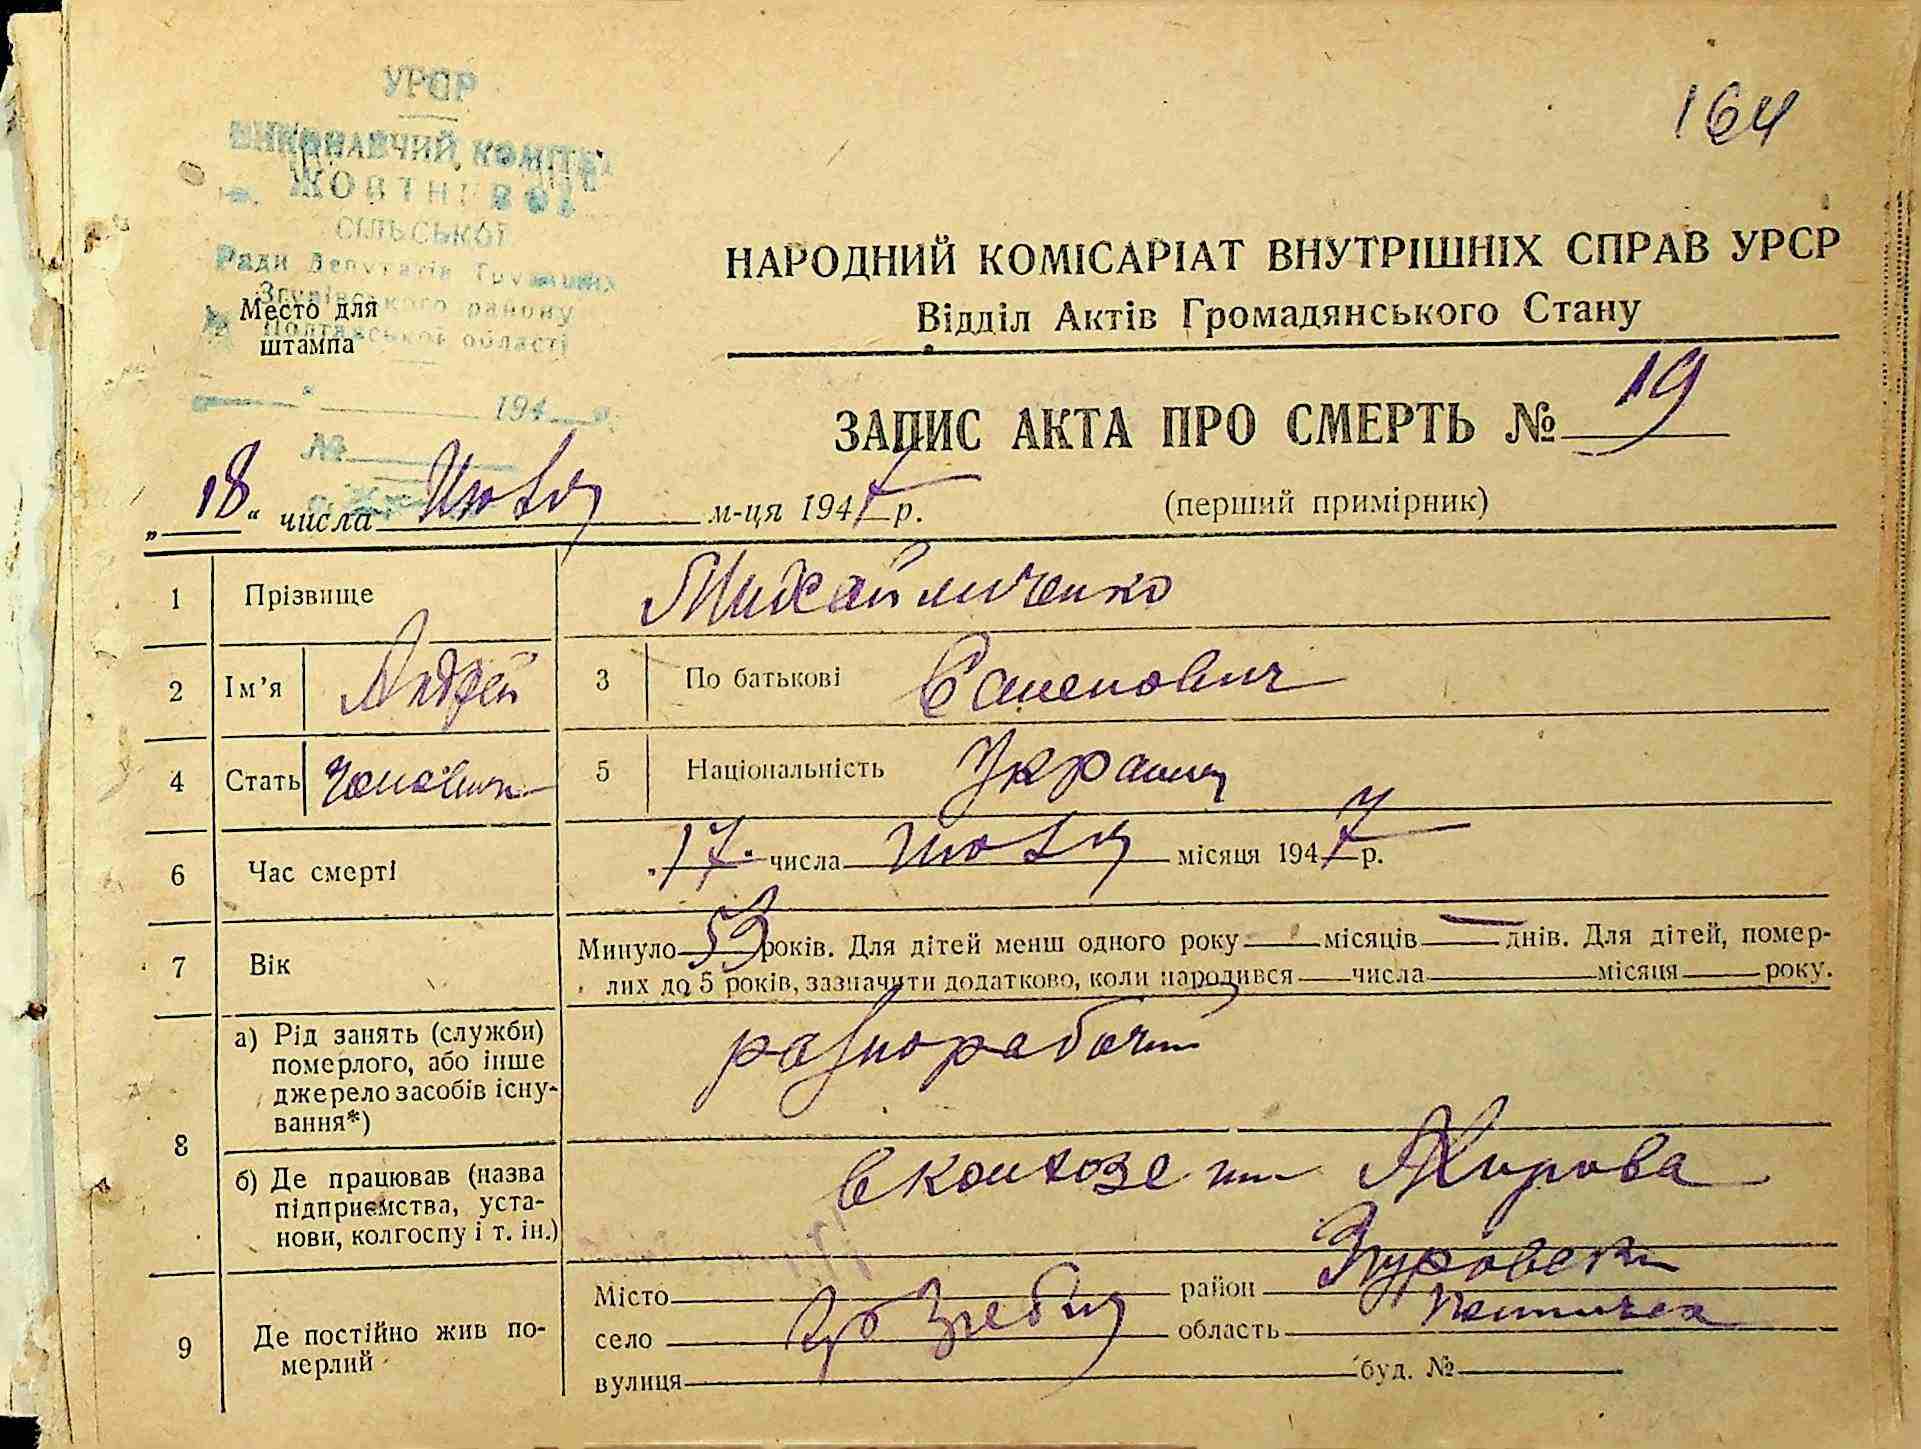 164
УРСР
ВИКОНАВЧИЙ КОМІТЕТ
ЖОВТНЕВОЇ
СІЛЬСЬКОЇ
Ради Депутатів Трудящих
Згурівського району
Полтавської області
194 р.
№
Место для
штампа
НАРОДНИЙ КОМІСАРІАТ ВНУТРІШНІХ СПРАВ УРСР
Відділ Актів Громадянського Стану
ЗАПИС АКТА ПРО СМЕРТЬ № 19
„18“ числа Июля м-ця 1947 р.
(перший примірник)
1 Прізвище Михайличенко
2 Ім’я Андрей 3 По батькові Семенович
4 Стать 5 Національність
6 Час смерті „17“ числа Июля місяця 1947 р.
7 Вік Минуло 59 років. Для дітей менш одного року — місяців — днів. Для дітей, помер-
лих до 5 років, зазначити додатково, коли народився числа місяця року.
8 а) Рід занять (служби) померлого, або інше джерело засобів існу-вання*) разнорабочий
б) Де працював (назва підприємства, уста-нови, колгоспу і т. ін.) в колхозе им Кирова
9 Де постійно жив по-мерлий
Місто район Згуровский
село область
вулиця буд. №